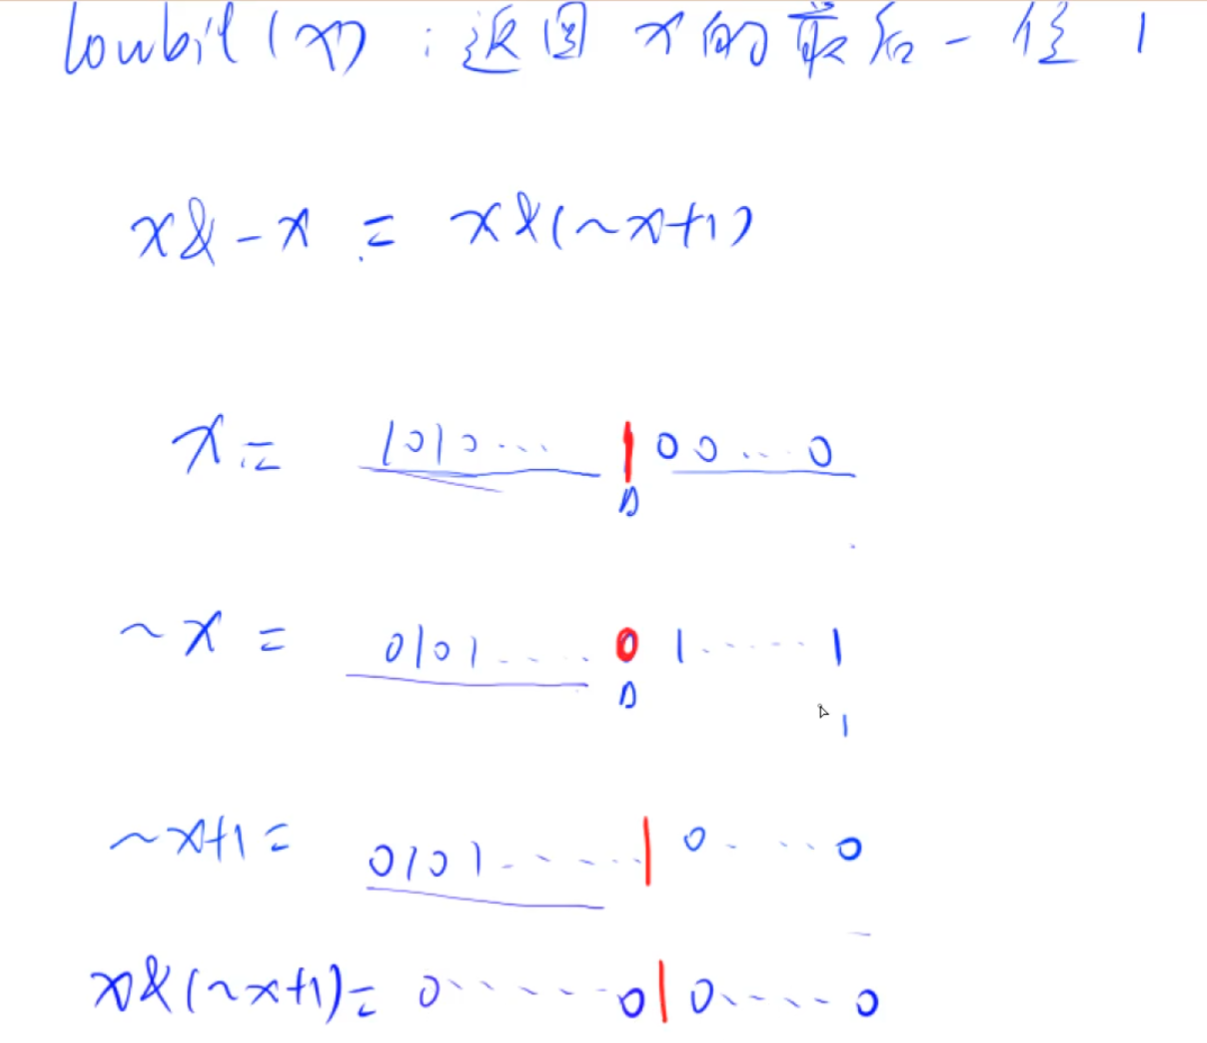 lowbit(x)：返回 x的最后一位1
x&-x = x&(~x+1)
x= 1010... 1 00...0
~x = 0101.... 0 1......1
1
~x+1= 0101...... 1 0....0
x&(~x+1)= 0.....0 1 0....0